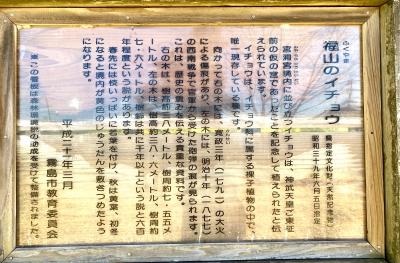 ふくやま
福山のイチョウ
県指定文化財（天然記念物）
昭和三十九年六月五日指定
宮浦宮境内に並び立つイチョウは、神武天皇ご東征
前の仮の宮であったことを記念して植えられたと伝
えられています。
イチョウは、イチョウ科に属する裸子植物の中で、
唯一現存している種です。
向かって右の木には、寛政三年（一七九一）の大火
による傷痕があり、左の木には、明治十年（一八七七）
の西南戦争で官軍から受けた砲弾の痕が見られます。
これは、歴史の重みを伝える貴重な資料です。
右の木は、樹高約三八メートル、樹周約七・五五メ
ートル、左の木は、樹高約三八・六メートル、樹周約
七・六メートル、樹齢は共に千年以上という説と六百
年程度という説があります。
春先には枝いっぱいに若葉を付け、秋は黄葉、初冬
になると境内が黄色のじゅうたんを敷きつめたよう
になります。
平成二十年三月
霧島市教育委員会
この看板は森林環境税の助成を受けて整備されました。